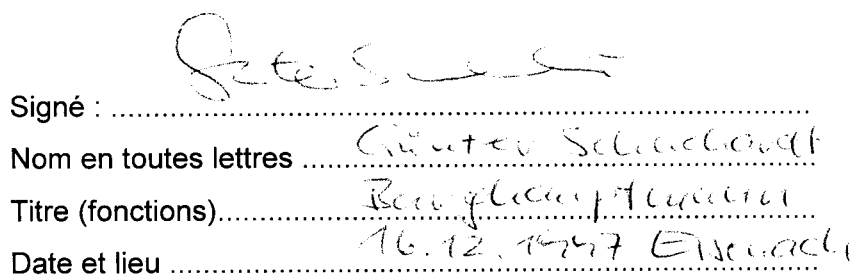 Signé :
Nom en toutes lettres Günter Schuchardt
Titre (fonctions) Burghauptmann
Date et lieu 16.12.1997 Eisenach